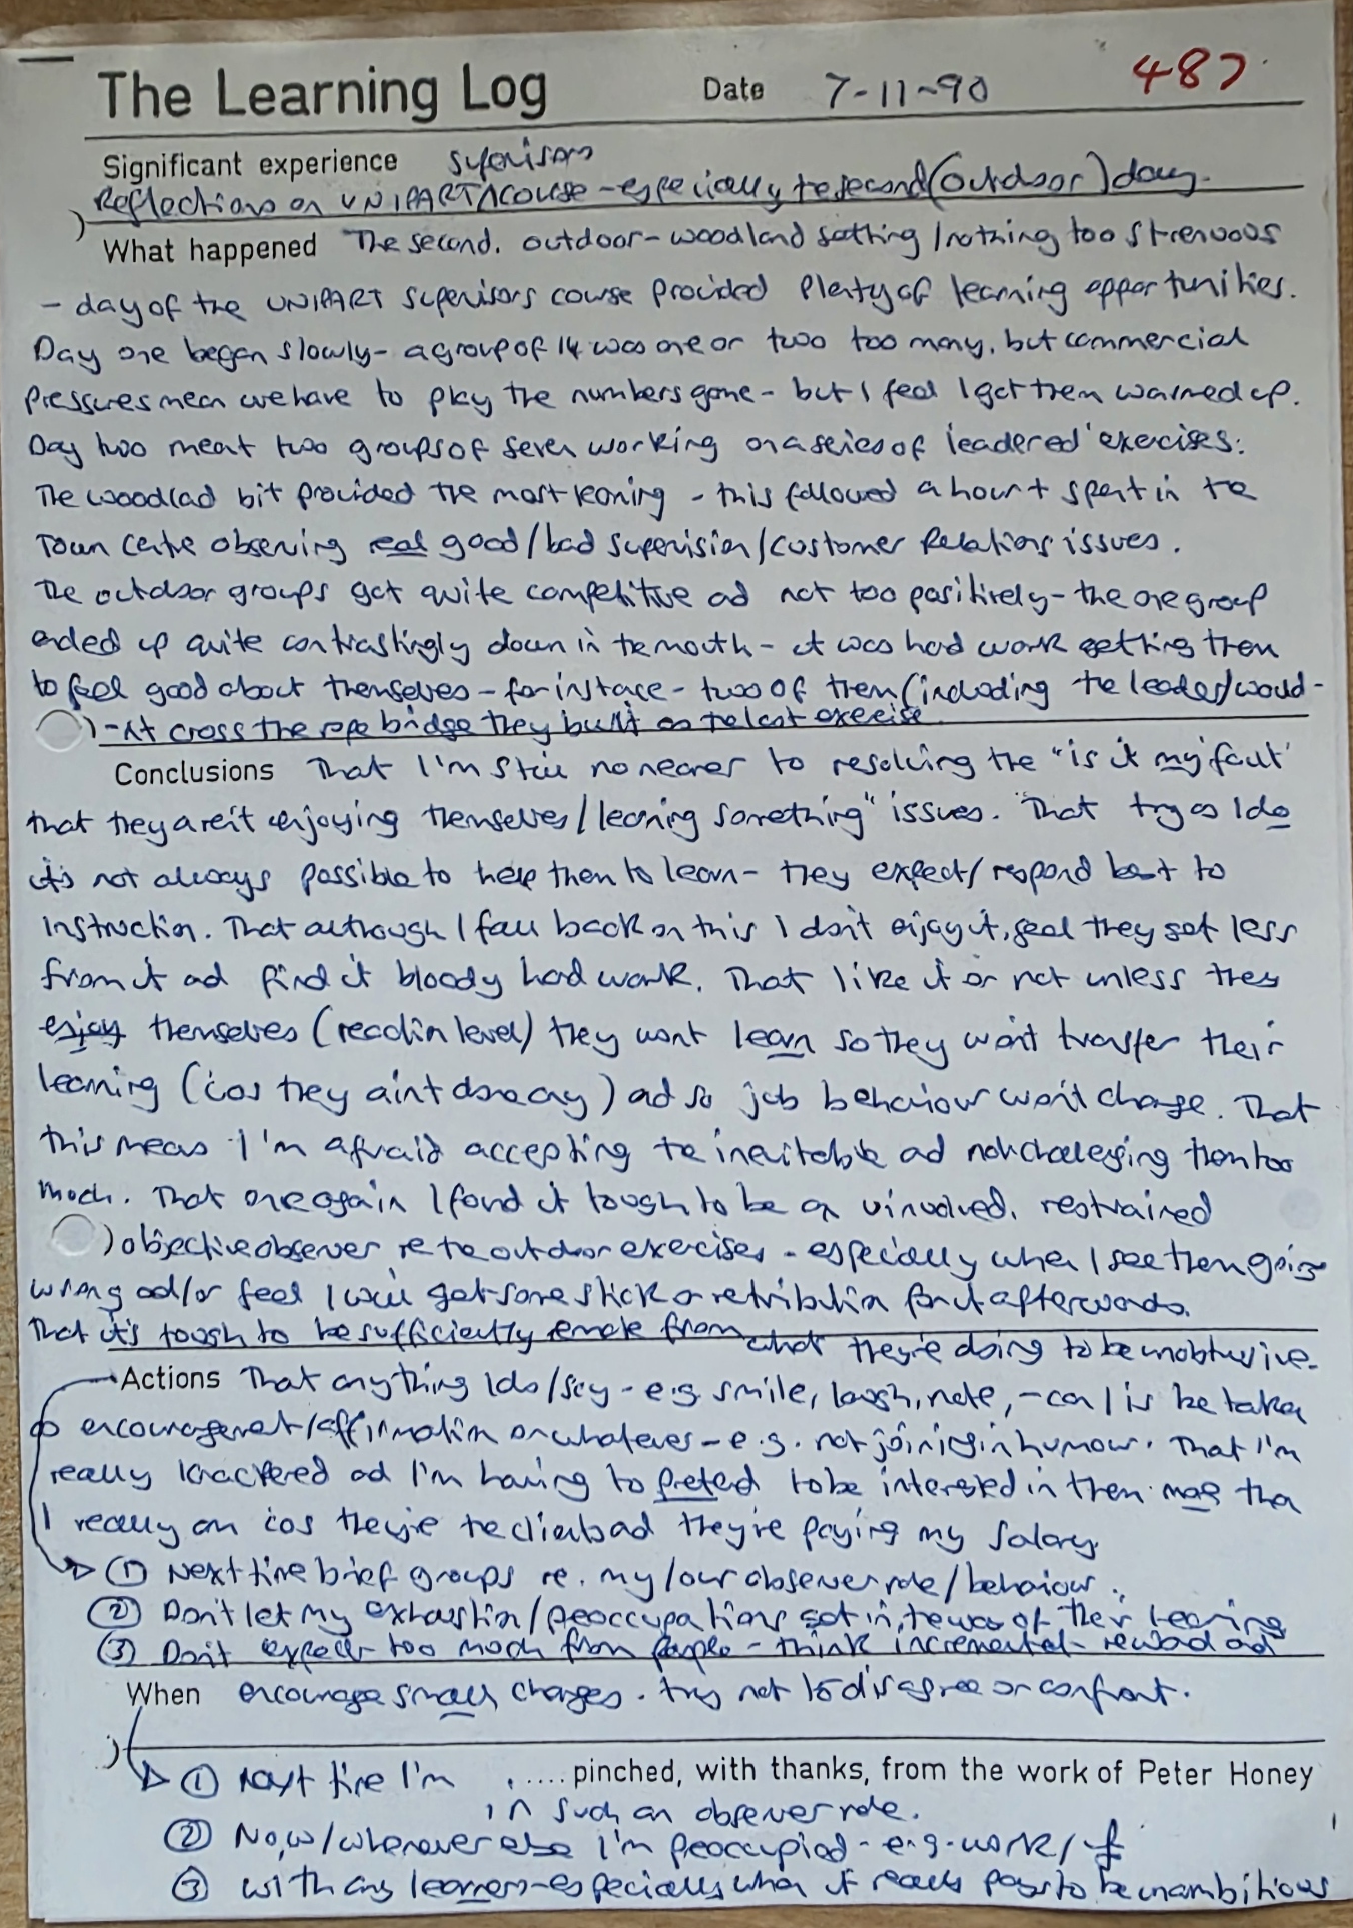 The Learning Log Date 7-11-90 487
Significant experience supervisors
Reflections on UNIPART course - especially the second (outdoor) day.
What happened The second, outdoor - woodland setting / nothing too strenuous
- day of the UNIPART supervisors course provided plenty of learning opportunities.
Day one began slowly - a group of 14 was one or two too many, but commercial
pressures mean we have to play the numbers game - but I feel I got them warmed up.
Day two meant two groups of seven working on a series of 'leadered' exercises:
The woodlad bit provided the most learning - this followed a hour + spent in the
Town centre observing real good/bad supervision/customer relations issues.
The outdoor groups got quite competitive ad not too positively - the one group
ended up quite contrastingly down in the mouth - it was hard work getting them
to feel good about themselves - for instance - two of them (including the leader) would-
-n't cross the rope bridge they built as the last exercise.
Conclusions That I'm still no nearer to resolving the "is it my fault
that they aren't enjoying themselves/learning something" issues. That try as I do
it's not always possible to help them to learn - they expect/respond best to
instruction. That although I fall back on this I don't enjoy it, feel they get less
from it ad find it bloody hard work. That like it or not unless they
enjoy themselves (reaction level) they wont learn so they won't transfer their
learning (cos they aint done any) ad so job behaviour won't change. That
this means I'm afraid accepting the inevitable ad not challenging them too
much. That once again I found it tough to be an uninvolved, restrained
objective observer re the outdoor exercises - especially when I see them going
wrong ad/or feel I will get some stick or retribution for it afterwards.
That it's tough to be sufficiently remote from what they're doing to be unobtrusive.
Actions That anything I do/say - e.g. smile, laugh, note, - can / is be taken
as encouragement/affirmation or whatever - e.g. not joining in humour. That I'm
really knackered ad I'm having to pretend to be interested in them more than
I really am cos they're the client ad they're paying my salary.
① Next time brief groups re. my/our observer role/behaviour.
② Don't let my exhaustion/preoccupations get in the way of their learning
③ Don't expect too much from people - think incremental - reward ad
When encourage small changes. try not to disagree or confront.
① Next time I'm ..... pinched, with thanks, from the work of Peter Honey
in such an observer role.
② Now/whenever else I'm preoccupied - e.g. work/
③ with any learners - especially when it really pays to be unambitious